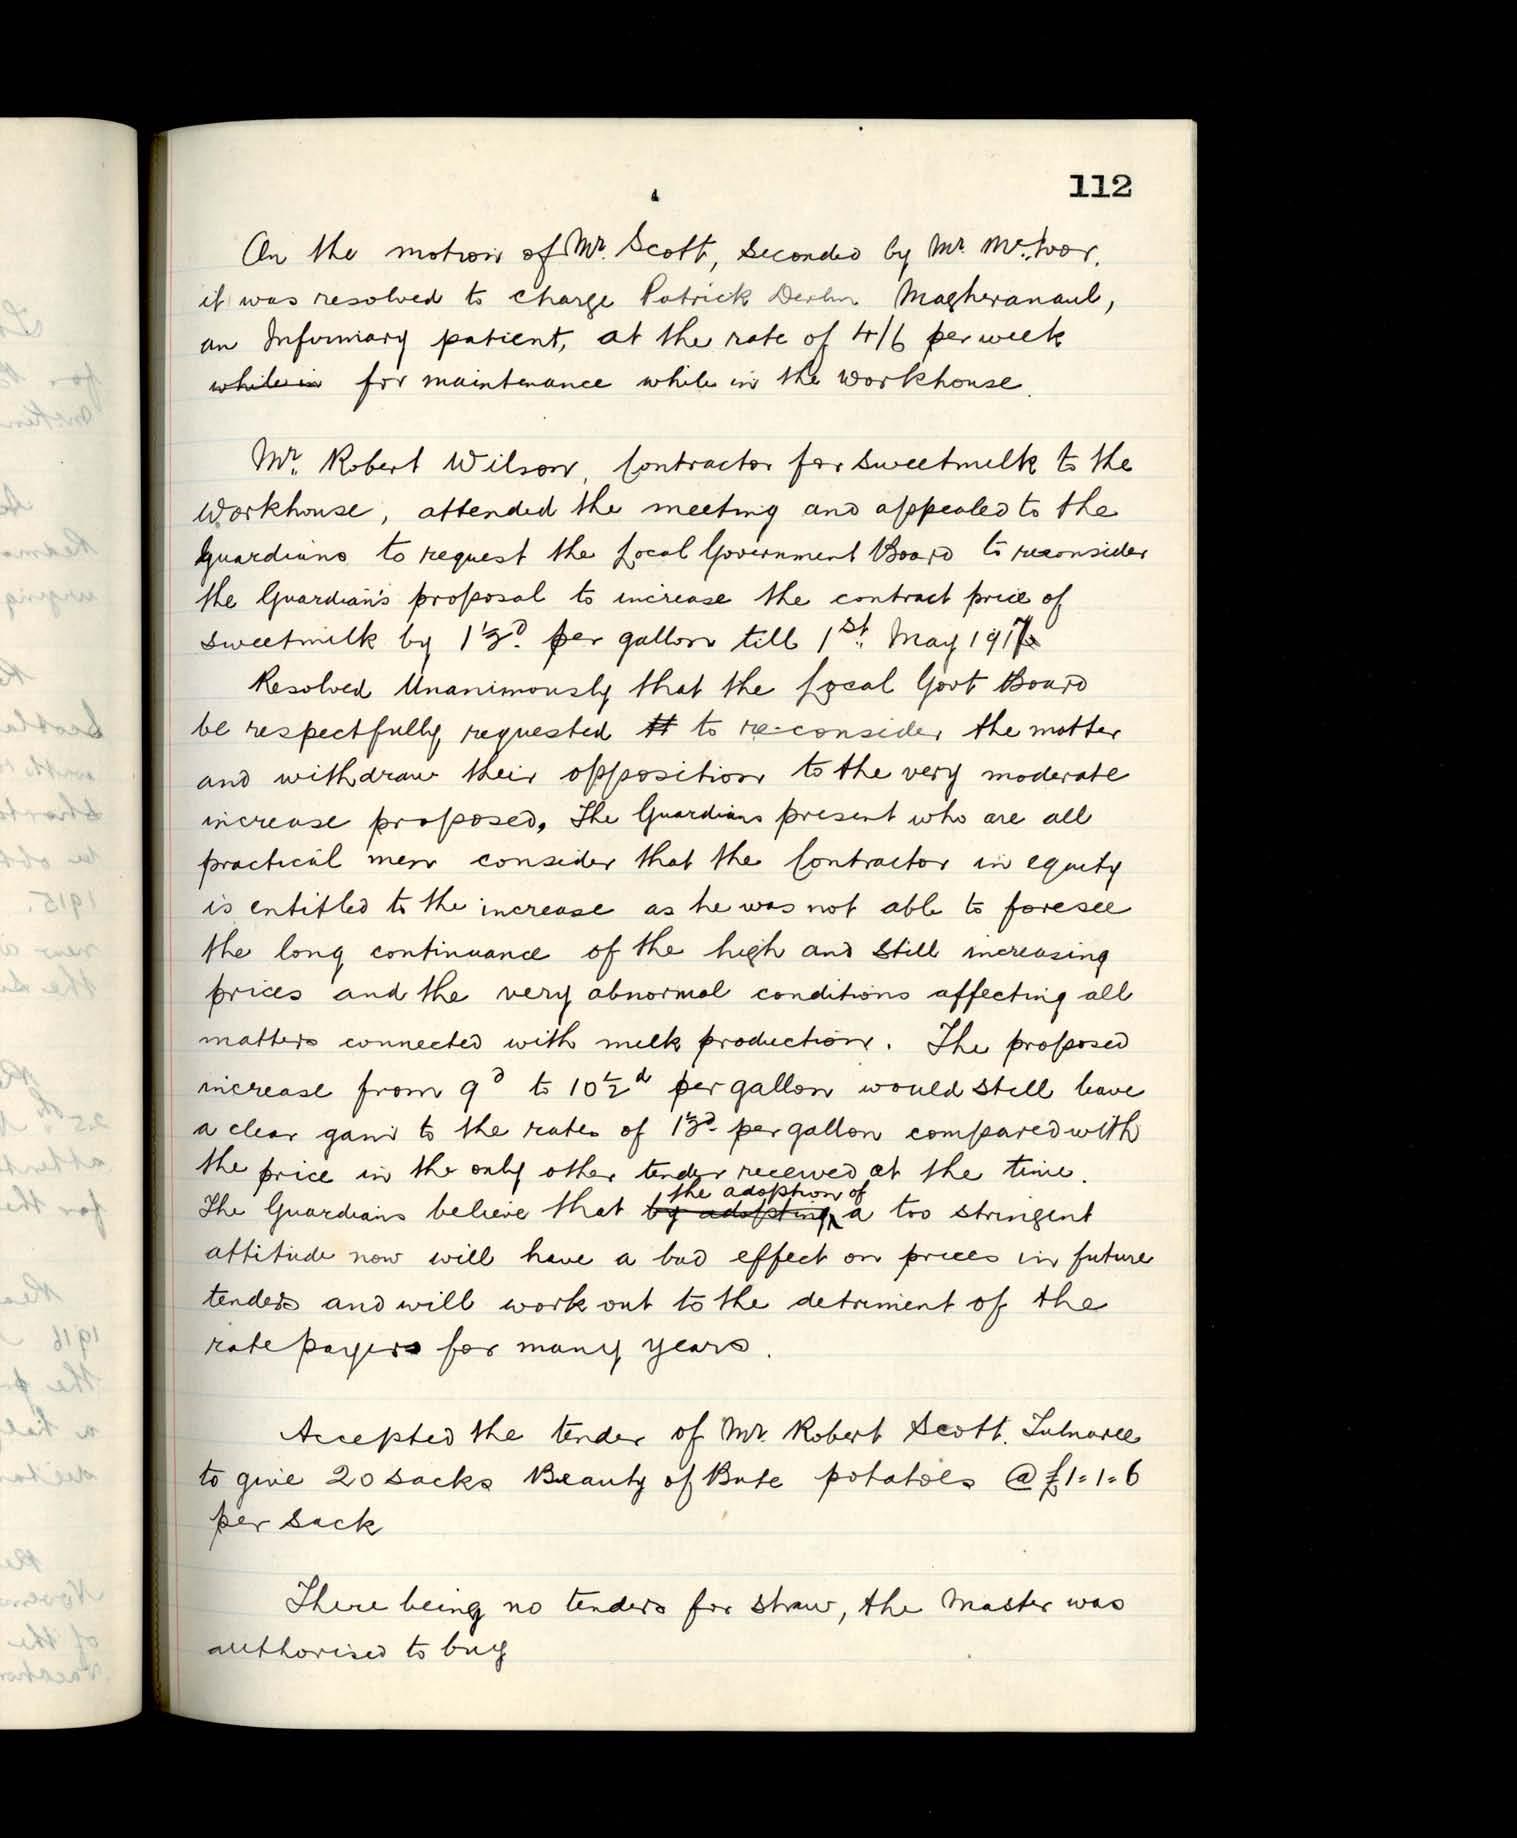 112
On the motion of Mr. Scott, seconded by Mr. McIvor.
it was resolved to charge Patrick Devlin Magheranaul,
an Infirmary patient, at the rate of 4/6 per week
while in for maintenance while in the workhouse.
Mr. Robert Wilson, Contractor for sweetmilk to the
Workhouse, attended the meeting and appealed to the
Guardians to request the Local Government Board to reconsider
the Guardian's proposal to increase the contract price of
sweetmilk by 1½d. per gallon till 1st May 1917
Resolved Unanimously that the Local Govt Board
be respectfully requested tt to re-consider the matter
and withdraw their opposition to the very moderate
increase proposed. The Guardians present who are all
practical men consider that the Contractor in equity
is entitled to the increase as he was not able to foresee
the long continuance of the high and still increasing
prices and the very abnormal conditions affecting all
matters connected with milk production. The proposed
increase from 9d to 10½d per gallon would still leave
a clear gain to the rates of 1½d. per gallon compared with
the price in the only other tender received at the time.
The Guardians believe that by adopting the adoption of a too stringent
attitude now will have a bad effect on prices in future
tenders and will work out to the detriment of the
rate payers for many years.
Accepted the tender of Mr. Robert Scott.
to give 20 sacks Beauty of Bute potatoes @ £1=1=6
per sack
There being no tenders for straw, the Master was
authorised to buy